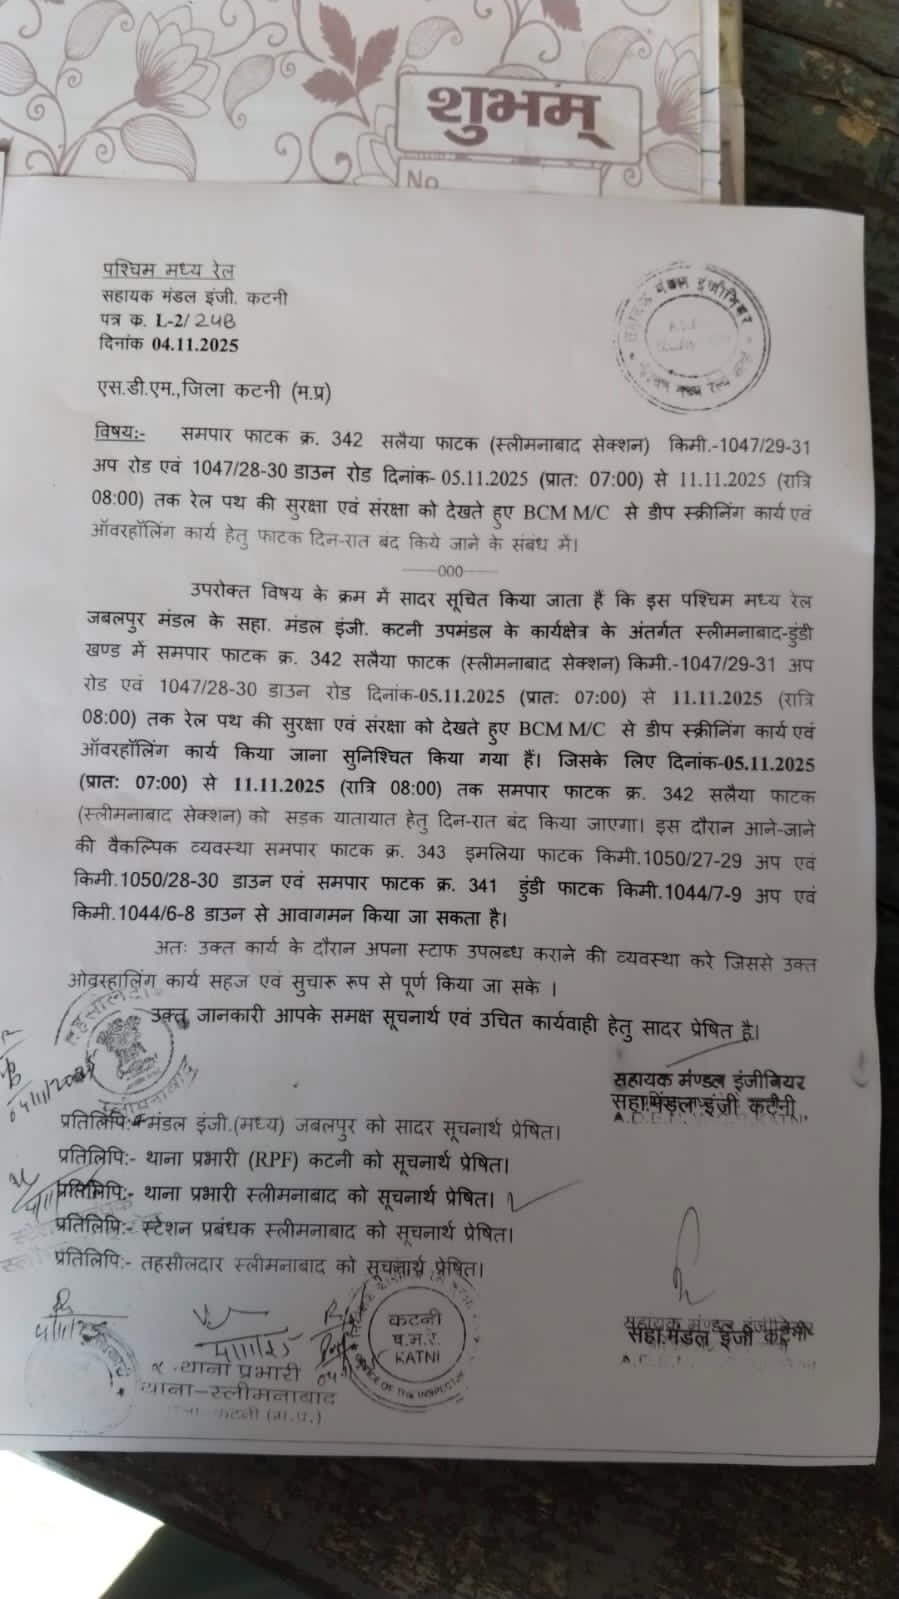 शुभम्
No
पश्चिम मध्य रेल
सहायक मंडल इंजी. कटनी
पत्र क. L-2/24B
दिनांक 04.11.2025
सहायक मंडल इंजीनियर
एस.डी.एम.,जिला कटनी (म.प्र)
विषय:- समपार फाटक क्र. 342 सलैया फाटक (स्लीमनाबाद सेक्शन) किमी.-1047/29-31
अप रोड एवं 1047/28-30 डाउन रोड दिनांक- 05.11.2025 (प्रात: 07:00) से 11.11.2025 (रात्रि
08:00) तक रेल पथ की सुरक्षा एवं संरक्षा को देखते हुए BCM M/C से डीप स्क्रीनिंग कार्य एवं
ऑवरहॉलिंग कार्य हेतु फाटक दिन-रात बंद किये जाने के संबंध में।
------000------
उपरोक्त विषय के क्रम में सादर सूचित किया जाता है कि इस पश्चिम मध्य रेल
जबलपुर मंडल के सहा. मंडल इंजी. कटनी उपमंडल के कार्यक्षेत्र के अंतर्गत स्लीमनाबाद-डुंडी
खण्ड में समपार फाटक क्र. 342 सलैया फाटक (स्लीमनाबाद सेक्शन) किमी.-1047/29-31 अप
रोड एवं 1047/28-30 डाउन रोड दिनांक-05.11.2025 (प्रात: 07:00) से 11.11.2025 (रात्रि
08:00) तक रेल पथ की सुरक्षा एवं संरक्षा को देखते हुए BCM M/C से डीप स्क्रीनिंग कार्य एवं
ऑवरहॉलिंग कार्य किया जाना सुनिश्चित किया गया हैं। जिसके लिए दिनांक-05.11.2025
(प्रात: 07:00) से 11.11.2025 (रात्रि 08:00) तक समपार फाटक क्र. 342 सलैया फाटक
(स्लीमनाबाद सेक्शन) को सड़क यातायात हेतु दिन-रात बंद किया जाएगा। इस दौरान आने-जाने
की वैकल्पिक व्यवस्था समपार फाटक क्र. 343 इमलिया फाटक किमी.1050/27-29 अप एवं
किमी.1050/28-30 डाउन एवं समपार फाटक क्र. 341 डुंडी फाटक किमी.1044/7-9 अप एवं
किमी.1044/6-8 डाउन से आवागमन किया जा सकता है।
अतः उक्त कार्य के दौरान अपना स्टाफ उपलब्ध कराने की व्यवस्था करे जिससे उक्त
ओवरहालिंग कार्य सहज एवं सुचारू रूप से पूर्ण किया जा सके ।
उक्त जानकारी आपके समक्ष सूचनार्थ एवं उचित कार्यवाही हेतु सादर प्रेषित है।
सहायक मंण्डल इंजीनियर
सहा.मंडल इंजी कटनी
प्रतिलिपि:- मंडल इंजी.(मध्य) जबलपुर को सादर सूचनार्थ प्रेषित।
प्रतिलिपि:- थाना प्रभारी (RPF) कटनी को सूचनार्थ प्रेषित।
प्रतिलिपि:- थाना प्रभारी स्लीमनाबाद को सूचनार्थ प्रेषित।
प्रतिलिपि:- स्टेशन प्रबंधक स्लीमनाबाद को सूचनार्थ प्रेषित।
प्रतिलिपि:- तहसीलदार स्लीमनाबाद को सूचनार्थ प्रेषित।
कटनी
प.म.रे.
KATNI
OFFICE OF THE INSPECTOR
4/11/25
थाना प्रभारी
थाना-स्लीमनाबाद
कटनी (म.प्र.)
सहायक मंण्डल इंजीनियर
सहा.मंडल इंजी कटनी